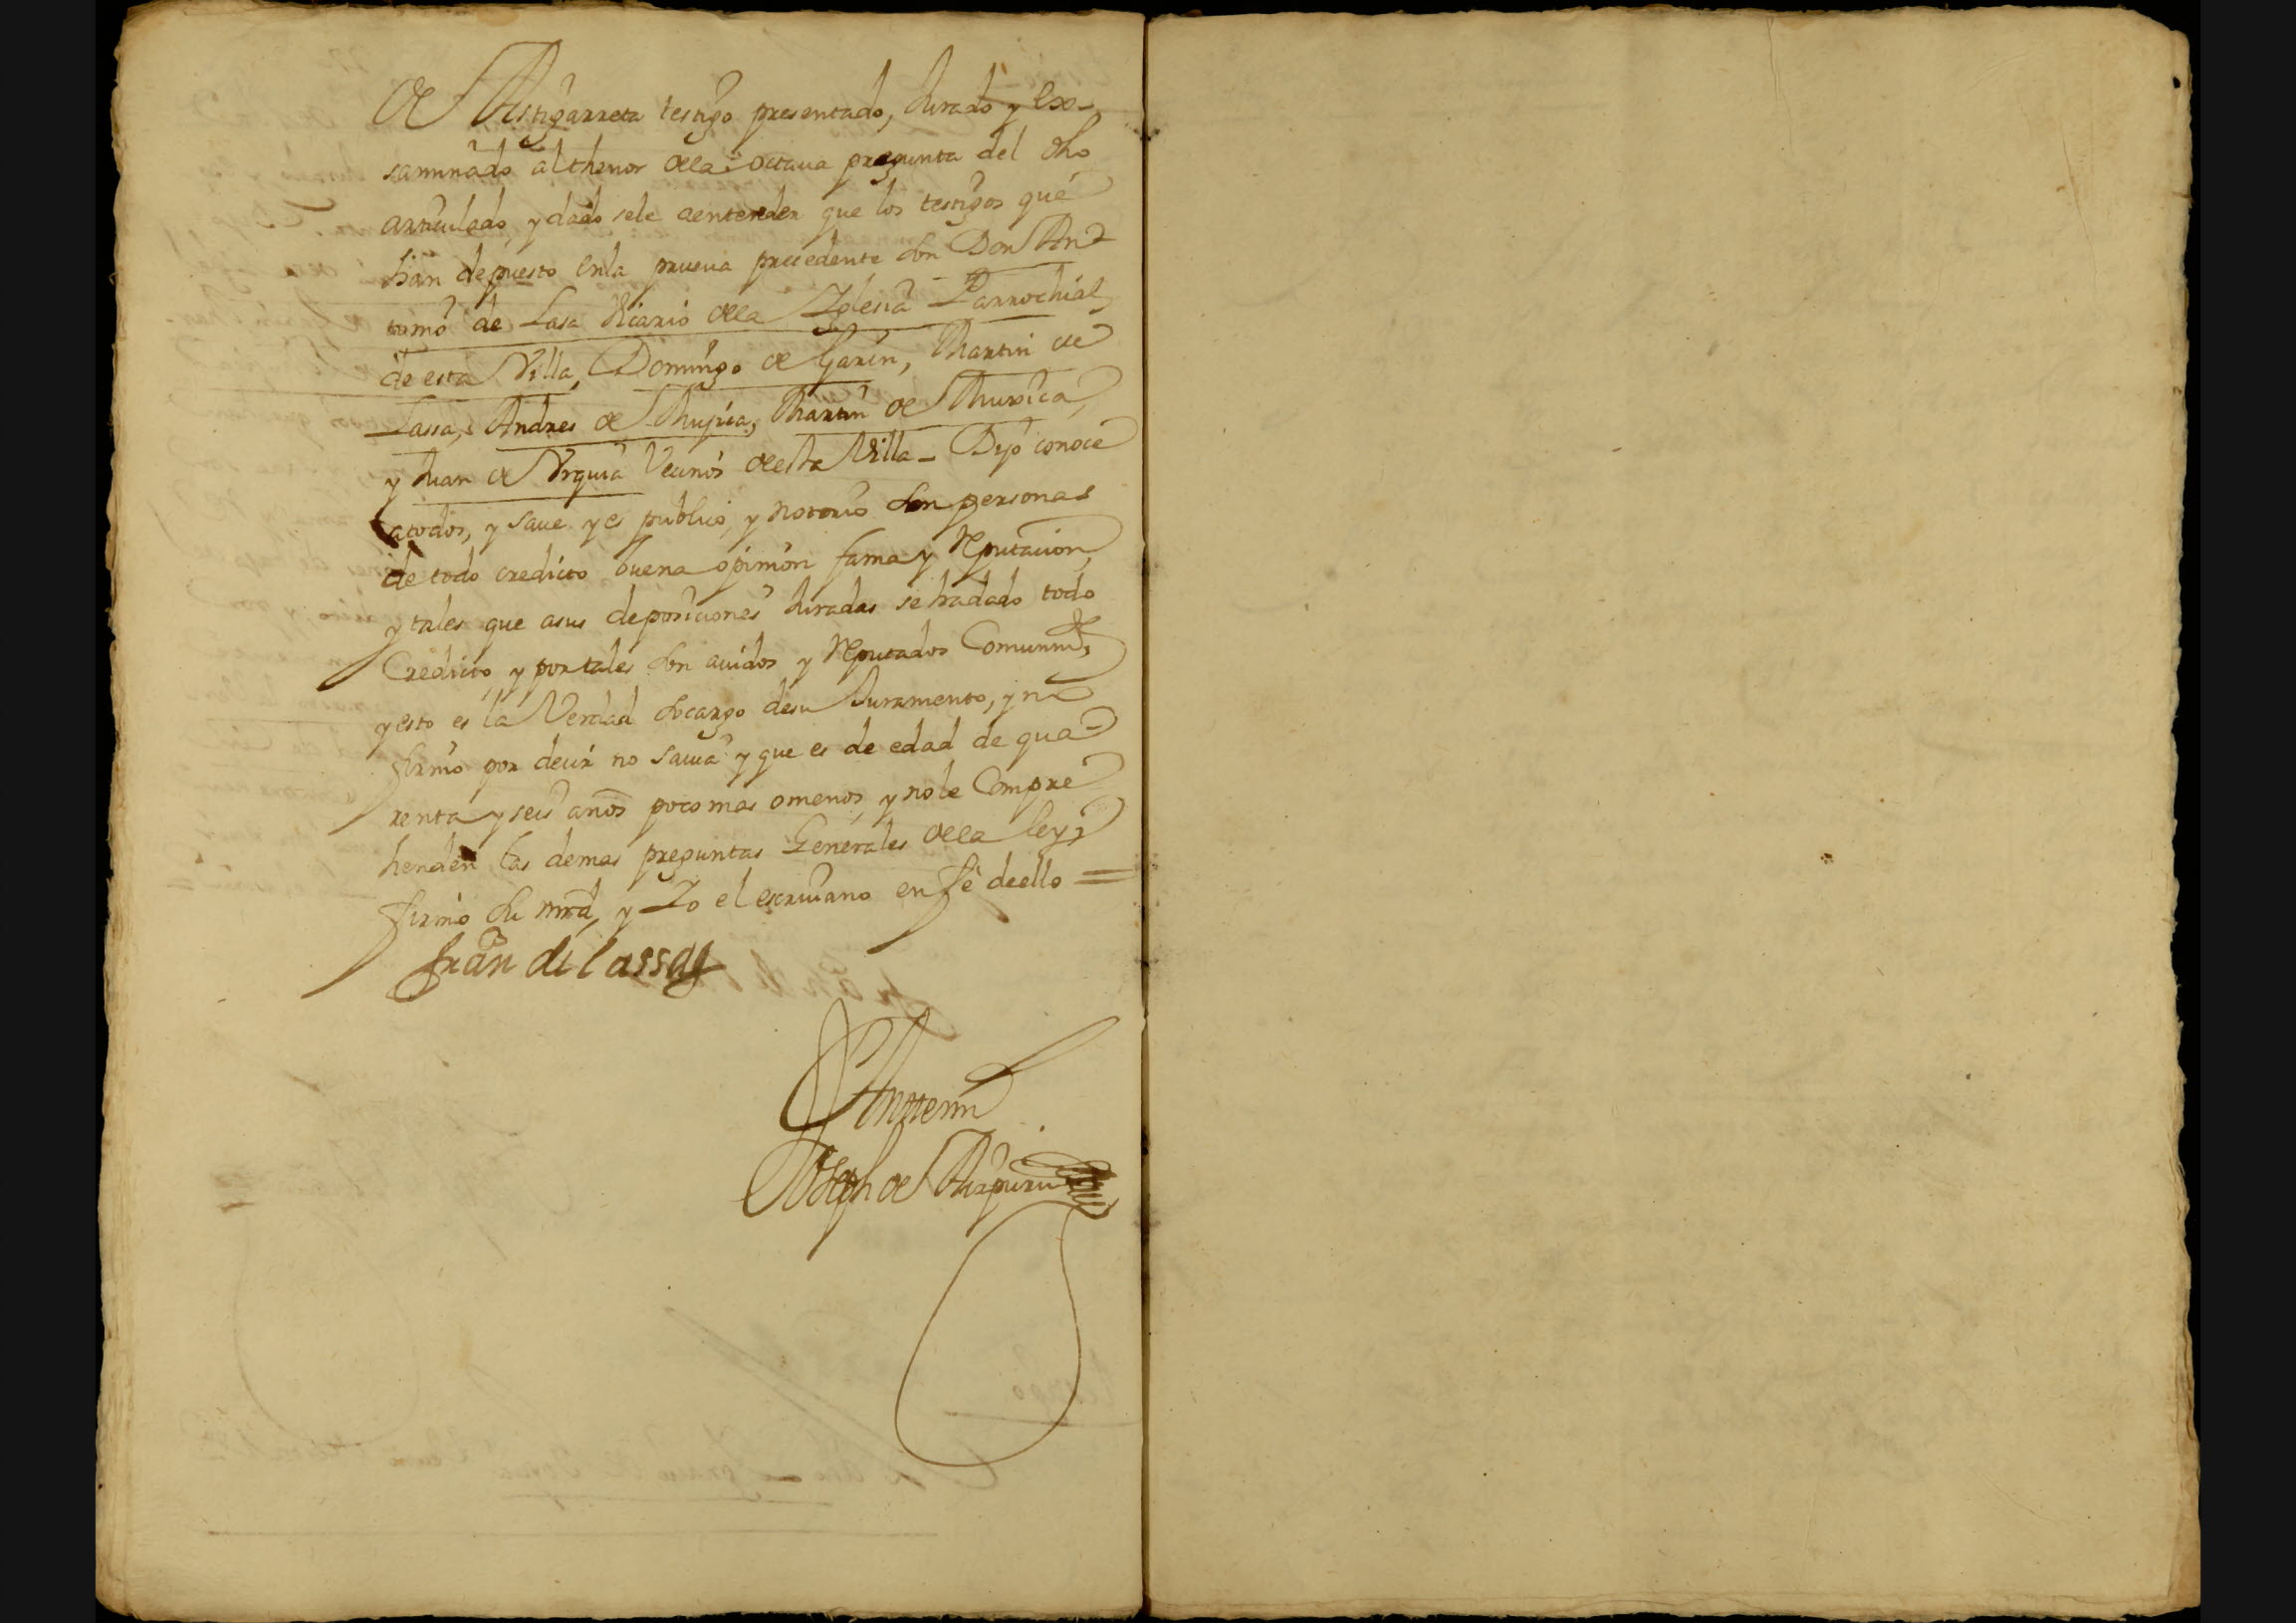 de Astigarreta testigo presentado, Jurado y ex-
saminado al thenor dela octaua pregunta del dho
articulado, y dado sele aentender que los testigos que
han depuesto enla prueua precedente son Don An-
tonio de Lasa Vicario dela Yglesia Parrochial,
de esta Villa, Domingo de Garin, Martin de
Lassa, Andres de Mujica, Martin de Muxica,
y Juan de Vrquia Vecinos desta Villa - Dijo conoce
atodos, y saue y es publico, y notorio son personas
de todo credicto buena opinion fama y Reputacion,
y tales que asus deposiciones Juradas se hadado todo
Credicto, y por tales son auidos y Reputados Comunmte,
y esto es la Verdad socargo desu Juramento, y no
firmo por decir no sauia y que es de edad de qua-
renta y seis años poco mas omenos, y no le Compre
henden las demas preguntas Generales dela ley,
firmo su mrd, y Yo el escriuano en fe deello =
fran de lassa
Antemi
Joseph de Aizpuru